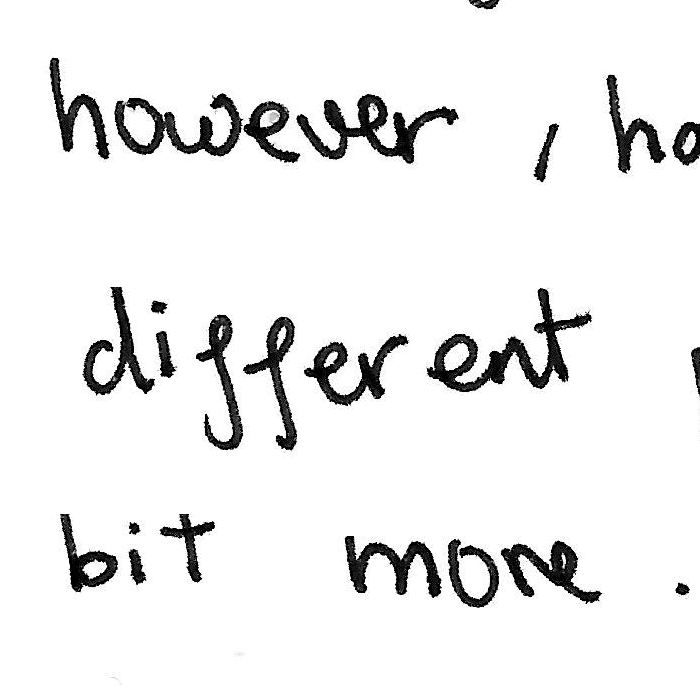 however,
different
bit more.